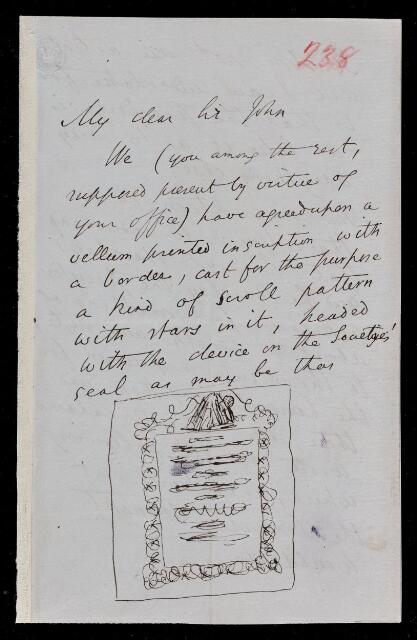 238
My dear Sir John
We (you among the rest,
supposed present by virtue of
your office) have agreed upon a
vellum printed inscription with
a border, cast for the purpose
a kind of scroll pattern
with stars in it, headed
with the device on the Society's
seal as may be thus